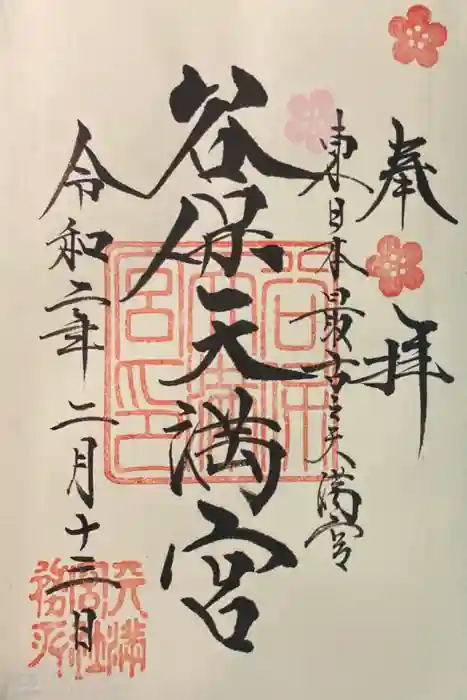 奉拝
東日本最古之天満宮
谷保天満宮
令和二年二月十三日
谷保
天満
宮印
天満
宮社
務所